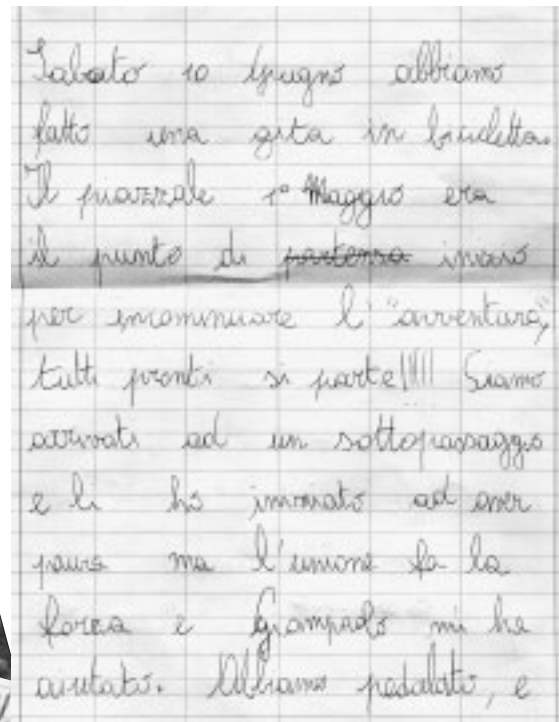 Sabato 10 Giugno abbiamo
fatto una gita in bicicletta.
Il piazzale 1° Maggio era
il punto di partenza inizio
per incominciare l'"avventura",
tutti pronti si parte!!!!! Siamo
arrivati ad un sottopassaggio
e lì ho iniziato ad aver
paura ma l'unione fa la
forza e Giampaolo mi ha
aiutato. Abbiamo pedalato, e